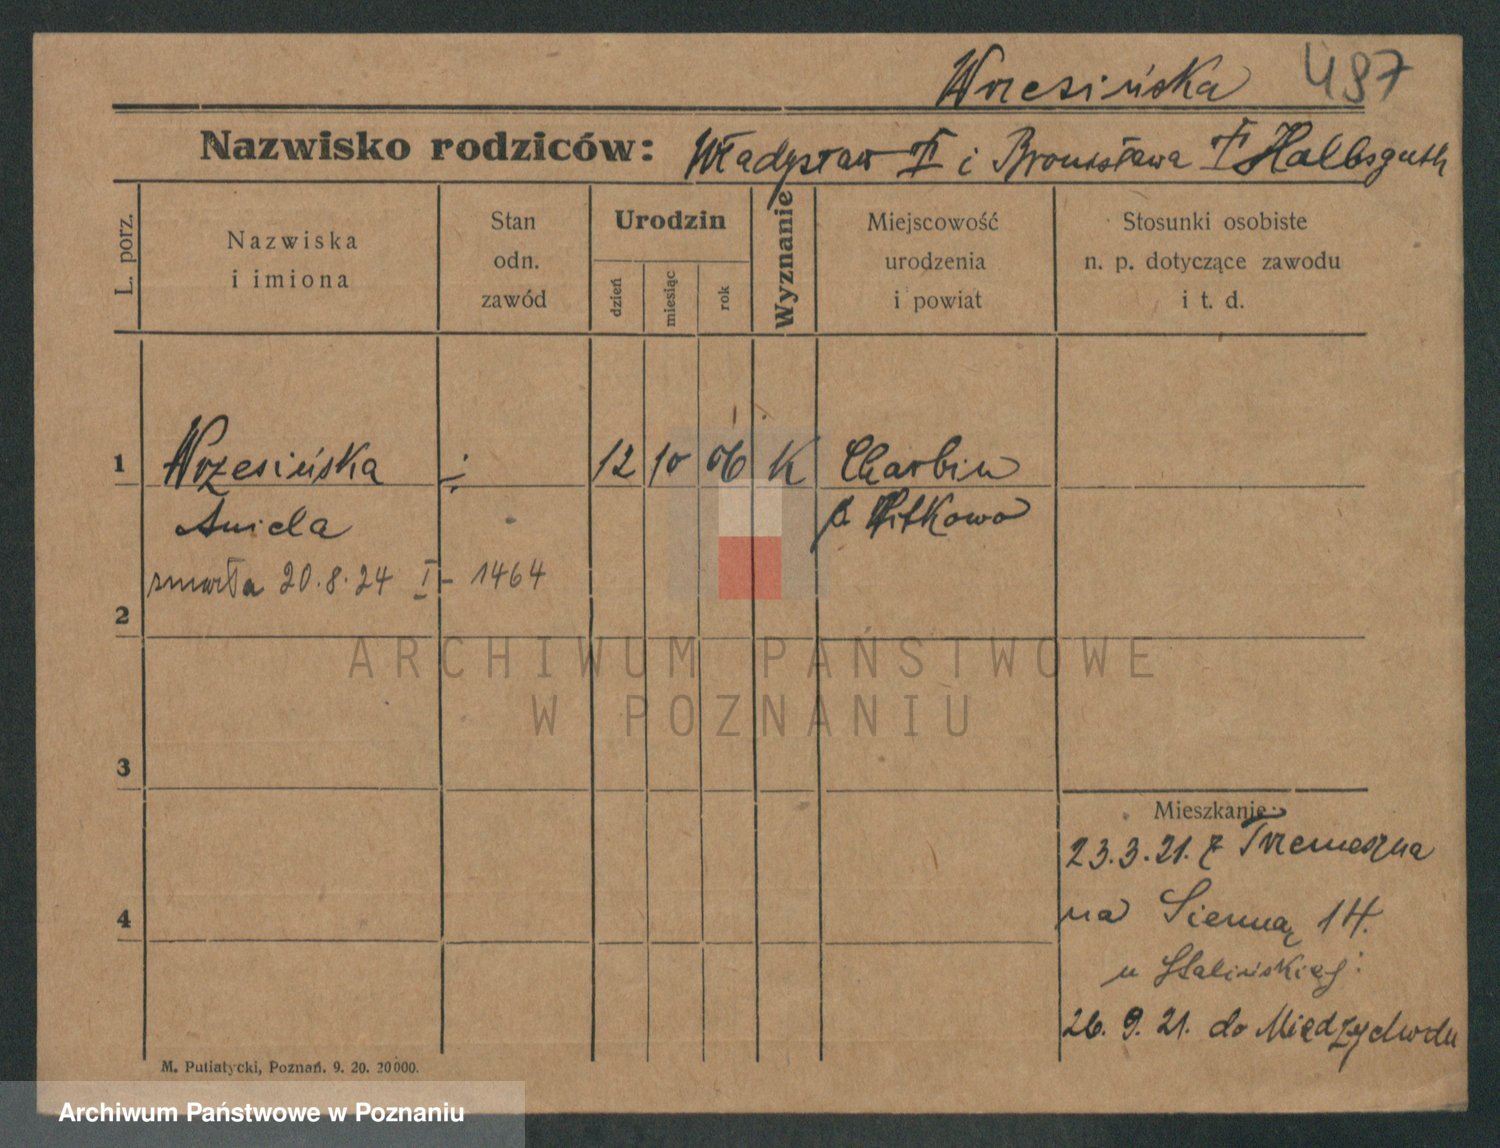 Wrzesińska 497
Nazwisko rodziców: Władysław † i Bronisława † Halbsguth
L. porz.
Nazwiska
i imiona
Stan
odn.
zawód
Urodzin
dzień
miesiąc
rok
Wyznanie
Miejscowość
urodzenia
i powiat
Stosunki osobiste
n. p. dotyczące zawodu
i t. d.
1 Wrzesińska ÷ 12 10 06 K Charbin
Aniela p. Witkowo
zmarła 20.8.24 I - 1464
2
3
4
Mieszkanie:
23.3.21. z Trzemeszna
na Sienną 14.
u Stalińskiej
26. 9. 21. do Międzychodu
M. Putiatycki, Poznań. 9. 20. 20000.
ARCHIWUM PAŃSTWOWE
W POZNANIU
Archiwum Państwowe w Poznaniu